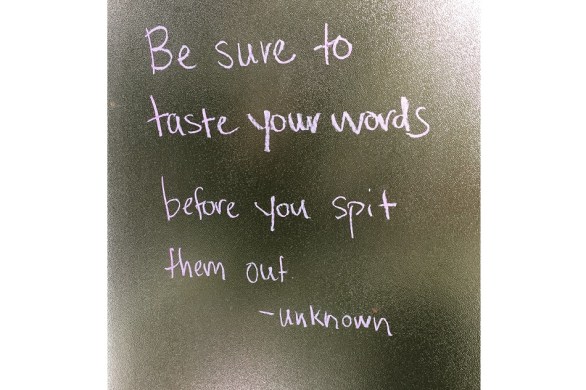 Be sure to
taste your words
before you spit
them out.
-unknown